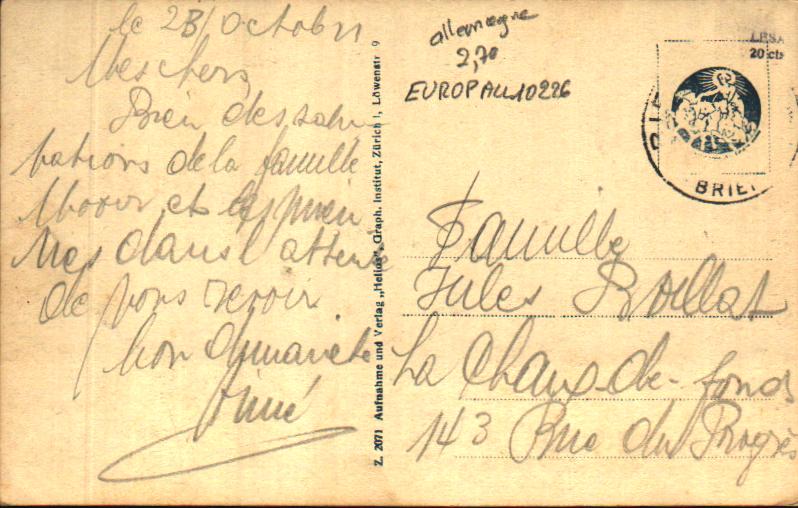 le 28 Octobre
Mes chers,
Bien des salu
tations de la famille
et les mien
nes dans l'attente
de vous revoir
bon dimanche
Aimé
Z. 2071 Aufnahme und Verlag „Helios“, Graph. Institut, Zürich 1, Löwenstr 9
allemagne
2,70
EUROPALL10226
20 cts
BRIE
Famille
Jules
La Chaux-de-fonds
143 Rue du Progrès